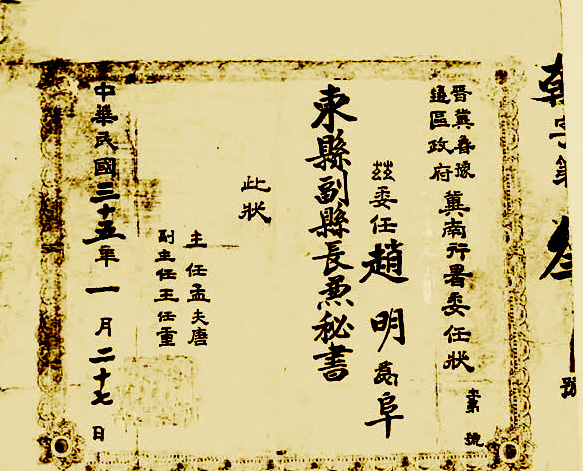 字第叁
號
晋冀魯豫
邊區政府
冀南行署委任狀
字第 號
茲委任趙明為阜
東縣副縣長兼秘書
此狀
主任孟夫唐
副主任王任重
中華民國三十五年一月二十七日